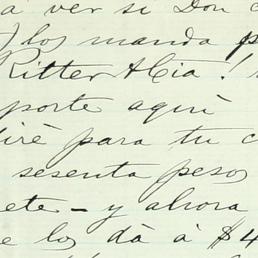 a ver si Don
los manda
Ritter &Cia!
porte aquí
diré para tu
sesenta pesos
ete - y ahora
e los dá á $4